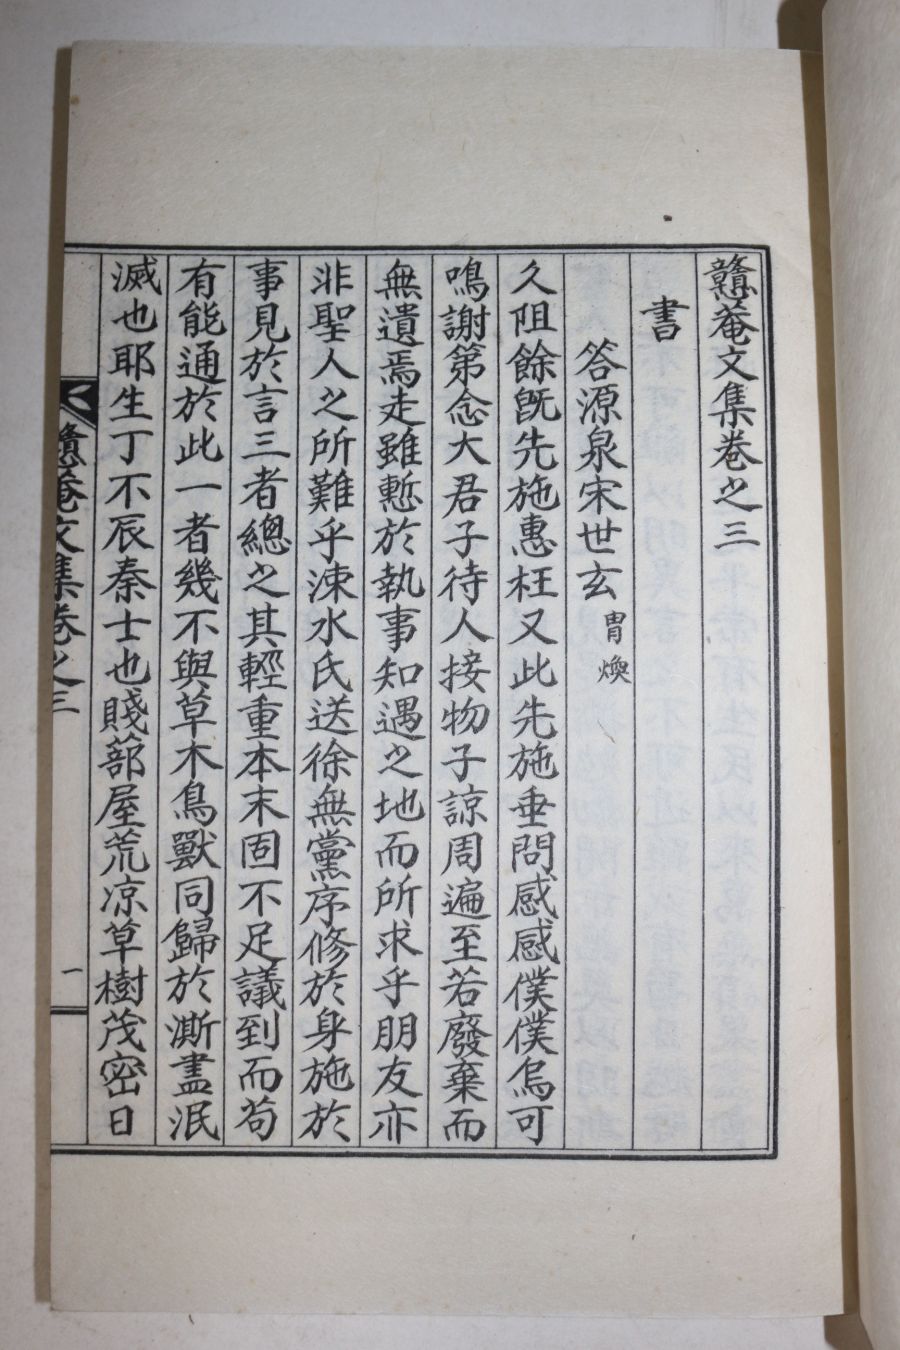 戇菴文集卷之三
書
答源泉宋世玄 胄煥
久阻餘旣先施惠枉又此先施垂問感感僕僕烏可
鳴謝第念大君子待人接物子諒周遍至若廢棄而
無遺焉走雖慙於執事知遇之地而所求乎朋友亦
非聖人之所難乎涑水氏送徐無黨序修於身施於
事見於言三者總之其輕重本末固不足議到而苟
有能通於此一者幾不與草木鳥獸同歸於澌盡泯
滅也耶生丁不辰秦士也賤蔀屋荒凉草樹茂密日
戇菴文集卷之三
一